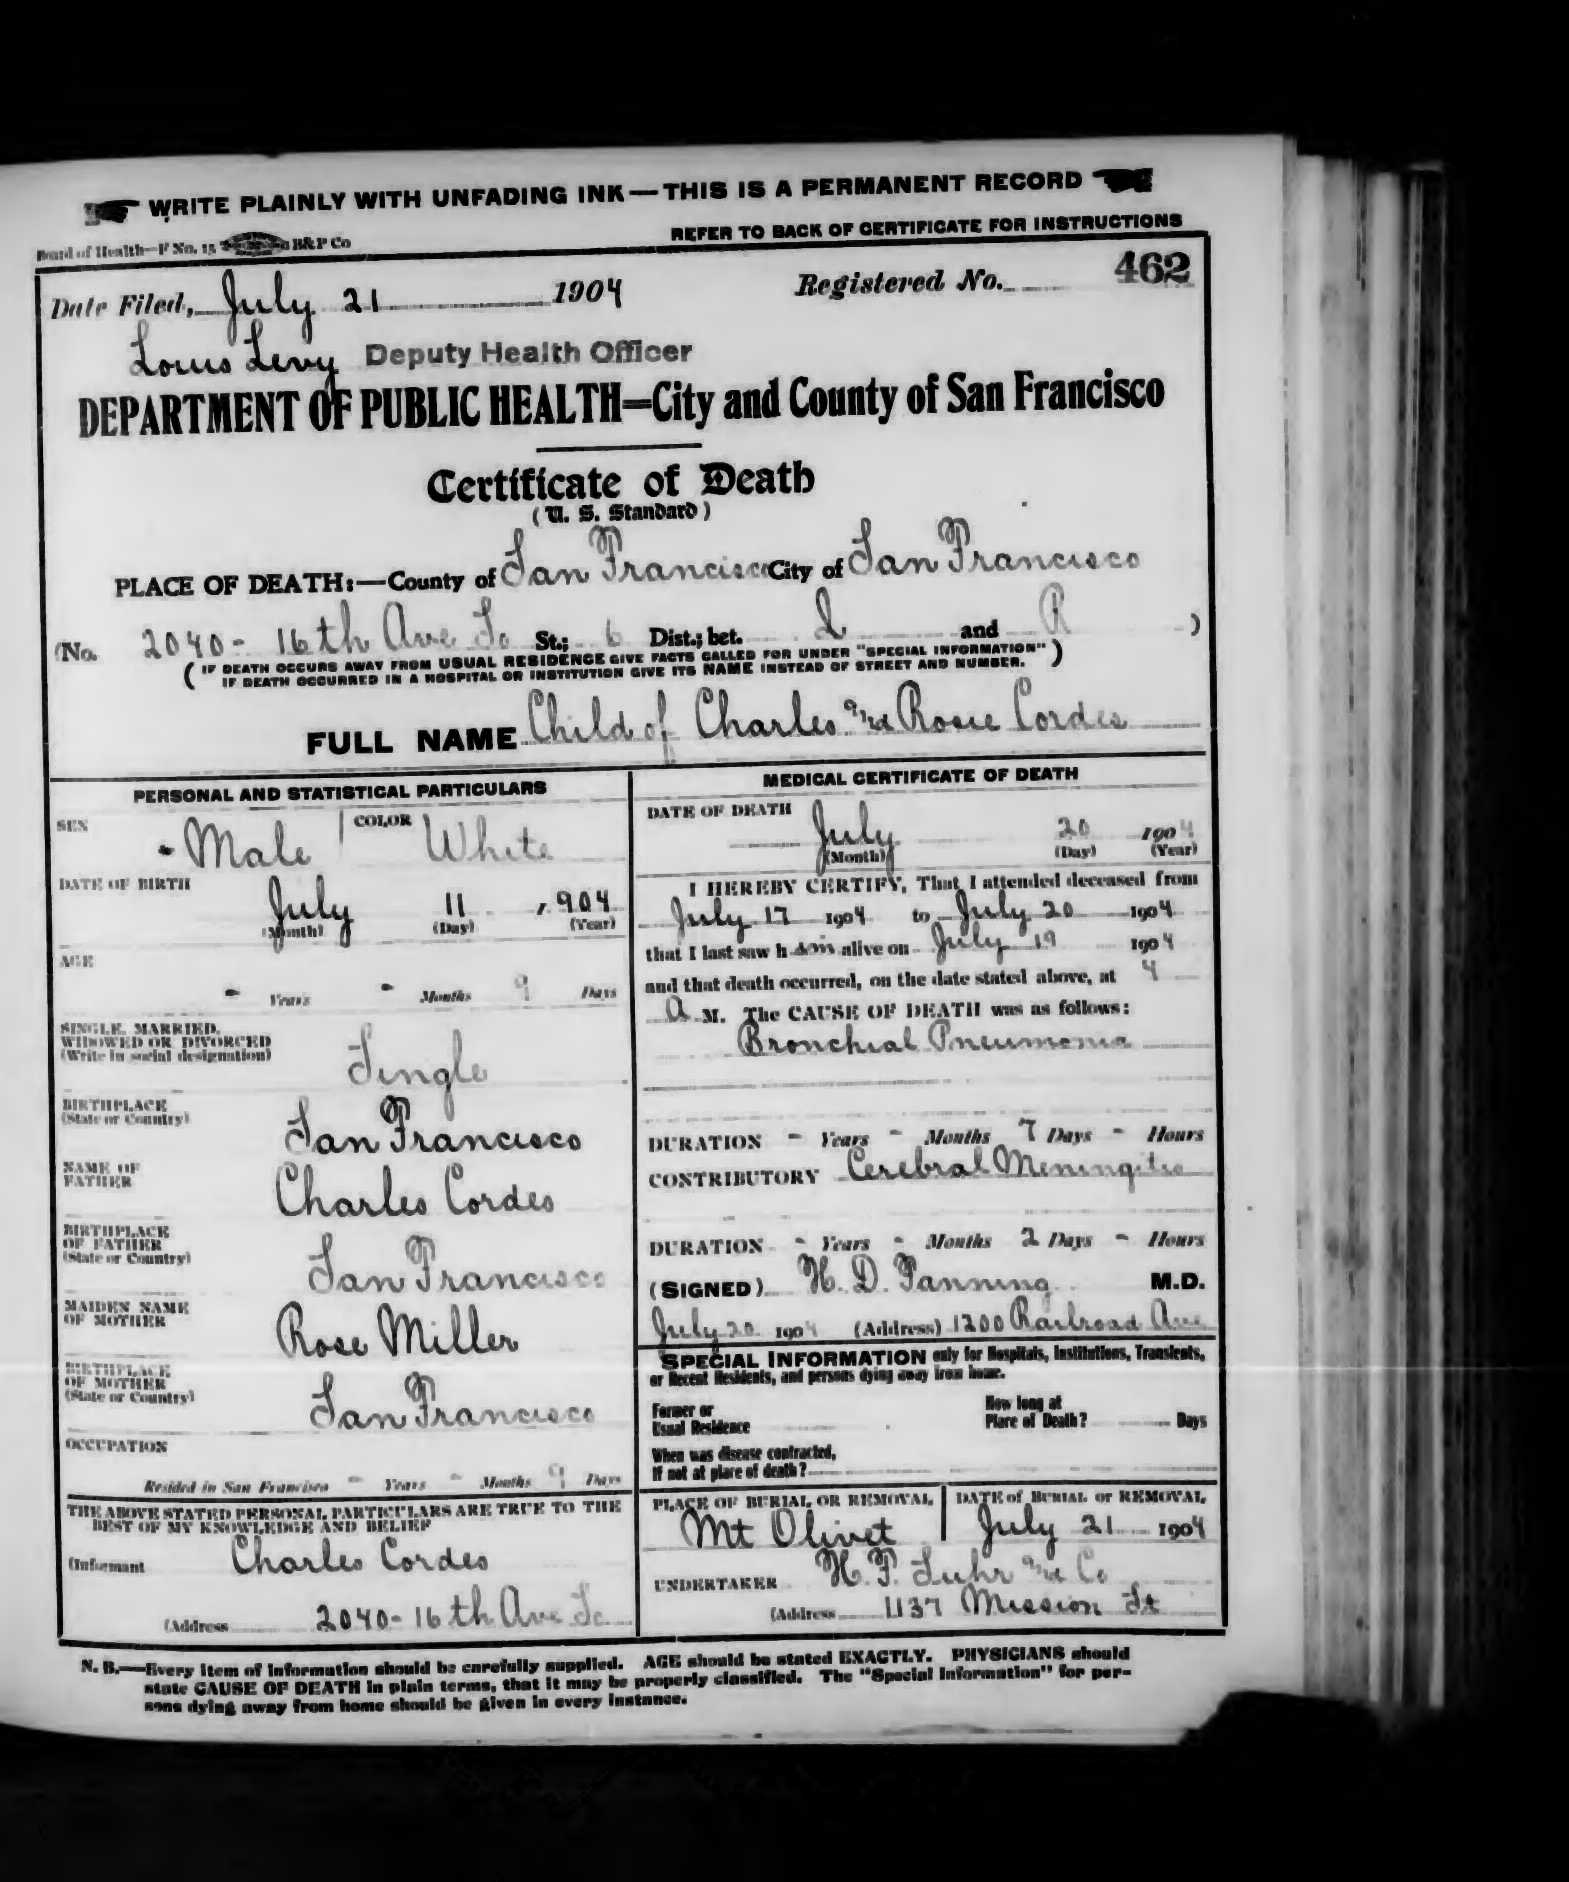 WRITE PLAINLY WITH UNFADING INK — THIS IS A PERMANENT RECORD
Board of Health—F No. 15 B&P Co
REFER TO BACK OF CERTIFICATE FOR INSTRUCTIONS
Date Filed, July 21 1904 Registered No. 462
Louis Levy Deputy Health Officer
DEPARTMENT OF PUBLIC HEALTH=City and County of San Francisco
Certificate of Death
(U. S. Standard)
PLACE OF DEATH:—County of San Francisco City of San Francisco
(No. 2040- 16th Ave So St.; 6 Dist.; bet. Q and R )
( IF DEATH OCCURS AWAY FROM USUAL RESIDENCE GIVE FACTS CALLED FOR UNDER "SPECIAL INFORMATION" )
IF DEATH OCCURRED IN A HOSPITAL OR INSTITUTION GIVE ITS NAME INSTEAD OF STREET AND NUMBER.
FULL NAME Child of Charles and Rosie Cordes
PERSONAL AND STATISTICAL PARTICULARS
SEX - Male COLOR White
DATE OF BIRTH
July 11 1904
(Month) (Day) (Year)
AGE
- Years - Months 9 Days
SINGLE, MARRIED,
WIDOWED OR DIVORCED
(Write in social designation)
Single
BIRTHPLACE
(State or Country)
San Francisco
NAME OF
FATHER
Charles Cordes
BIRTHPLACE
OF FATHER
(State or Country)
San Francisco
MAIDEN NAME
OF MOTHER
Rose Miller
BIRTHPLACE
OF MOTHER
(State or Country)
San Francisco
OCCUPATION
Resided in San Francisco - Years - Months 9 Days
THE ABOVE STATED PERSONAL PARTICULARS ARE TRUE TO THE
BEST OF MY KNOWLEDGE AND BELIEF
(Informant Charles Cordes
(Address 2040- 16th Ave So
MEDICAL CERTIFICATE OF DEATH
DATE OF DEATH
July 20 1904
(Month) (Day) (Year)
I HEREBY CERTIFY, That I attended deceased from
July 17 1904 to July 20 1904
that I last saw h im alive on July 19 1904
and that death occurred, on the date stated above, at 4
A M. The CAUSE OF DEATH was as follows:
Bronchial Pneumonia
DURATION - Years - Months 7 Days - Hours
CONTRIBUTORY Cerebral Meningitis
DURATION - Years - Months 2 Days - Hours
(SIGNED) H. D. Fanning M.D.
July 20 1904 (Address) 1200 Railroad Ave
SPECIAL INFORMATION only for Hospitals, Institutions, Transients,
or Recent Residents, and persons dying away from home.
Former or
Usual Residence
How long at
Place of Death? Days
When was disease contracted,
If not at place of death?
PLACE OF BURIAL OR REMOVAL
Mt Olivet
DATE of BURIAL or REMOVAL
July 21 1904
UNDERTAKER H. F. Suhr and Co
(Address 1137 Mission St
N. B.—Every item of information should be carefully supplied. AGE should be stated EXACTLY. PHYSICIANS should
state CAUSE OF DEATH in plain terms, that it may be properly classified. The "Special Information" for per-
sons dying away from home should be given in every instance.